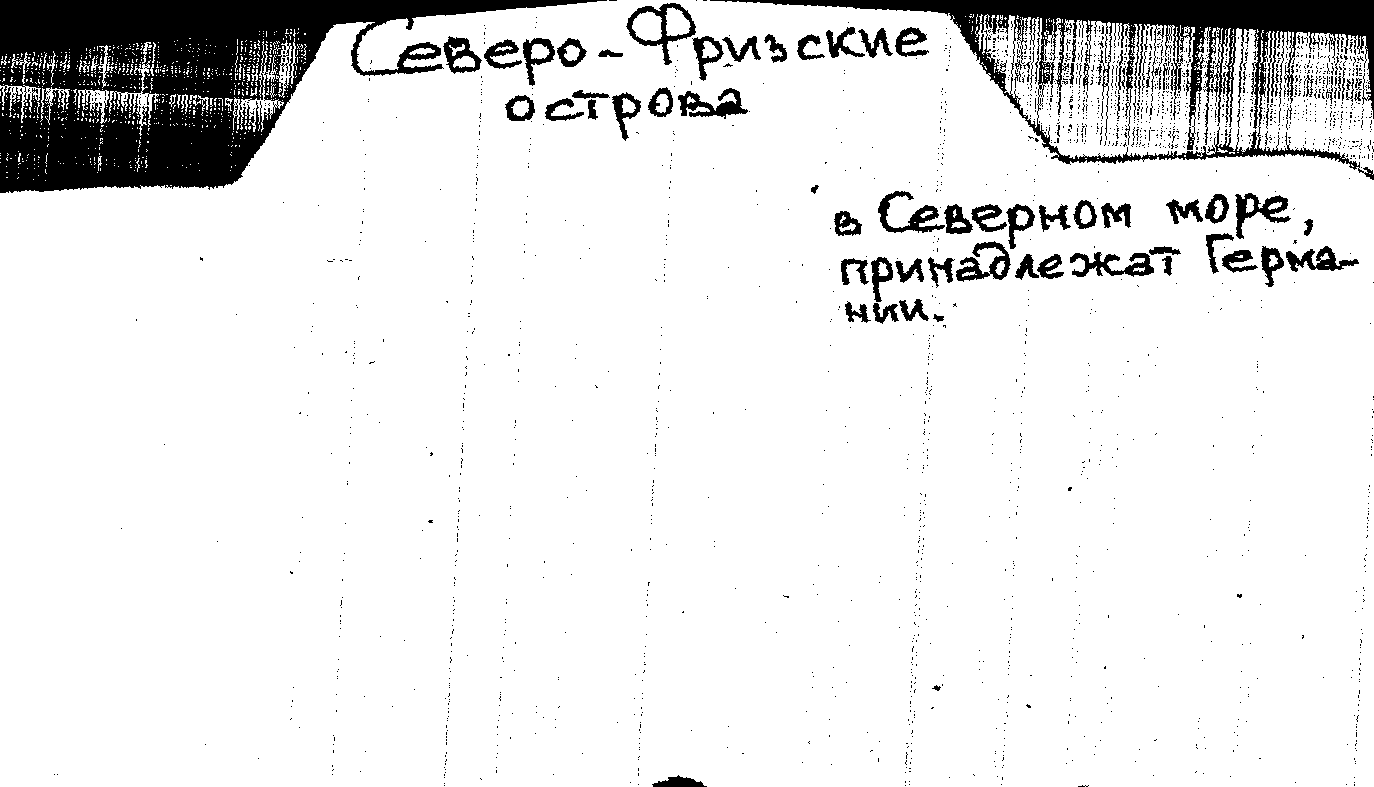 Северо-Фризские
острова
в Северном море,
принадлежат Герма-
нии.